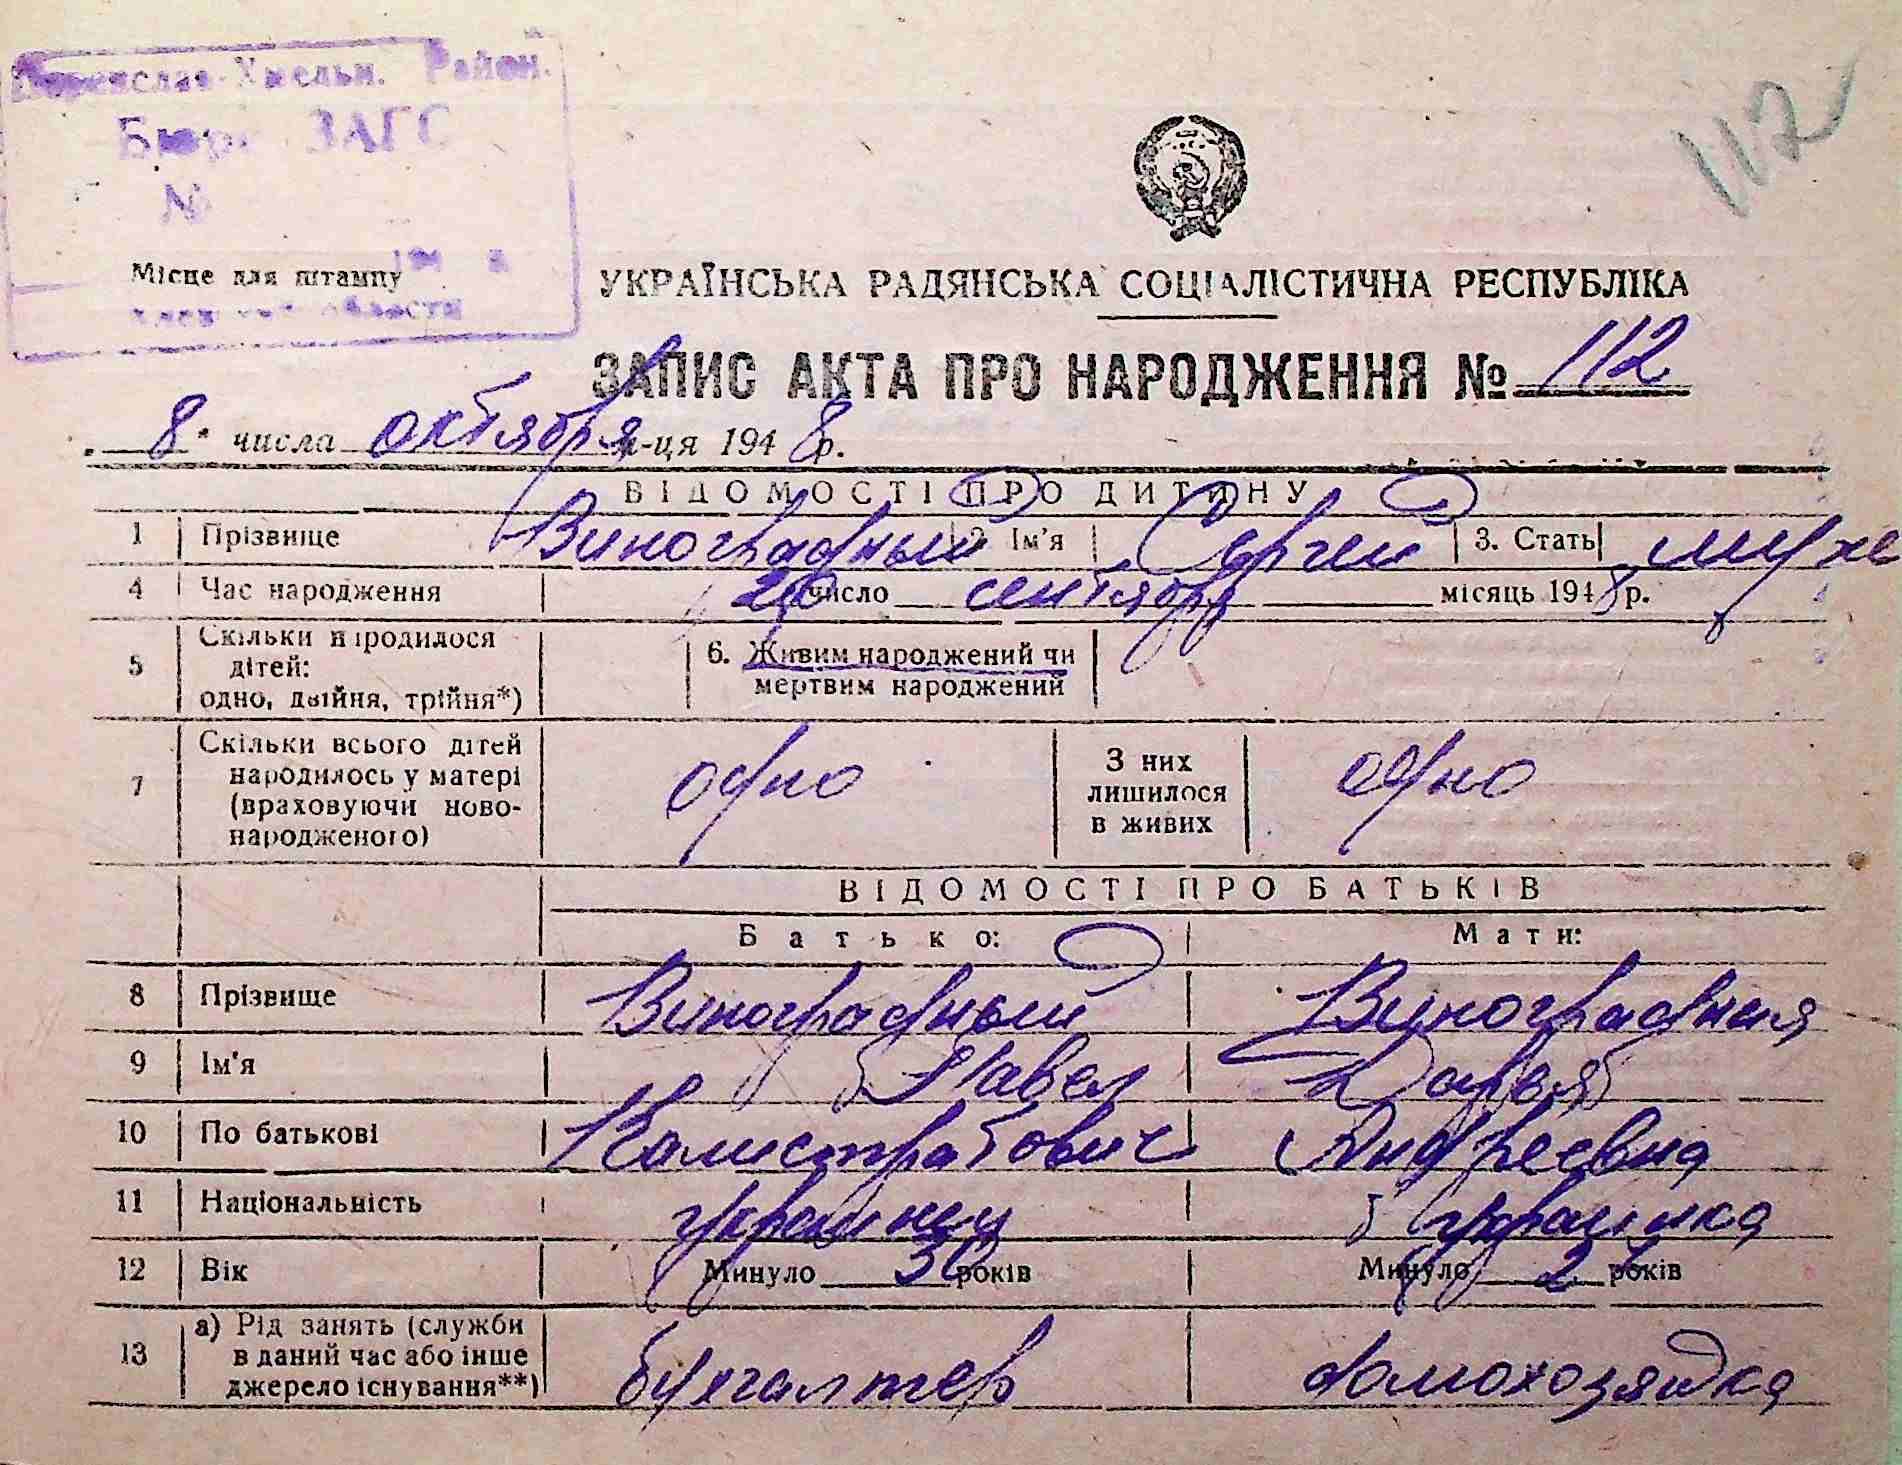 Хмельн. Район.
112
Бюро ЗАГС
№
194
Місце для штампу
области
УКРАЇНСЬКА РАДЯНСЬКА СОЦІАЛІСТИЧНА РЕСПУБЛІКА
ЗАПИС АКТА ПРО НАРОДЖЕННЯ № 112
„ 8 " числа октября м-ця 1948 р.
ВІДОМОСТІ ПРО ДИТИНУ
1 Прізвище Виноградный 2. Ім'я Сергей 3. Стать муж
4 Час народження число сентября місяць 1948 р.
5 Скільки народилося дітей: одно, двійня, трійня*) 6. Живим народжений чи мертвим народжений
7 Скільки всього дітей народилось у матері (враховуючи новонародженого) одно З них лишилося в живих одно
ВІДОМОСТІ ПРО БАТЬКІВ
Батько: Мати:
8 Прізвище Виноградный Виноградная
9 Ім'я Павел Дарья
10 По батькові Калистратович Андреевна
11 Національність украинец украинка
12 Вік Минуло років Минуло років
13 а) Рід занять (служби в даний час або інше джерело існування**) бухгалтер домохозяйка